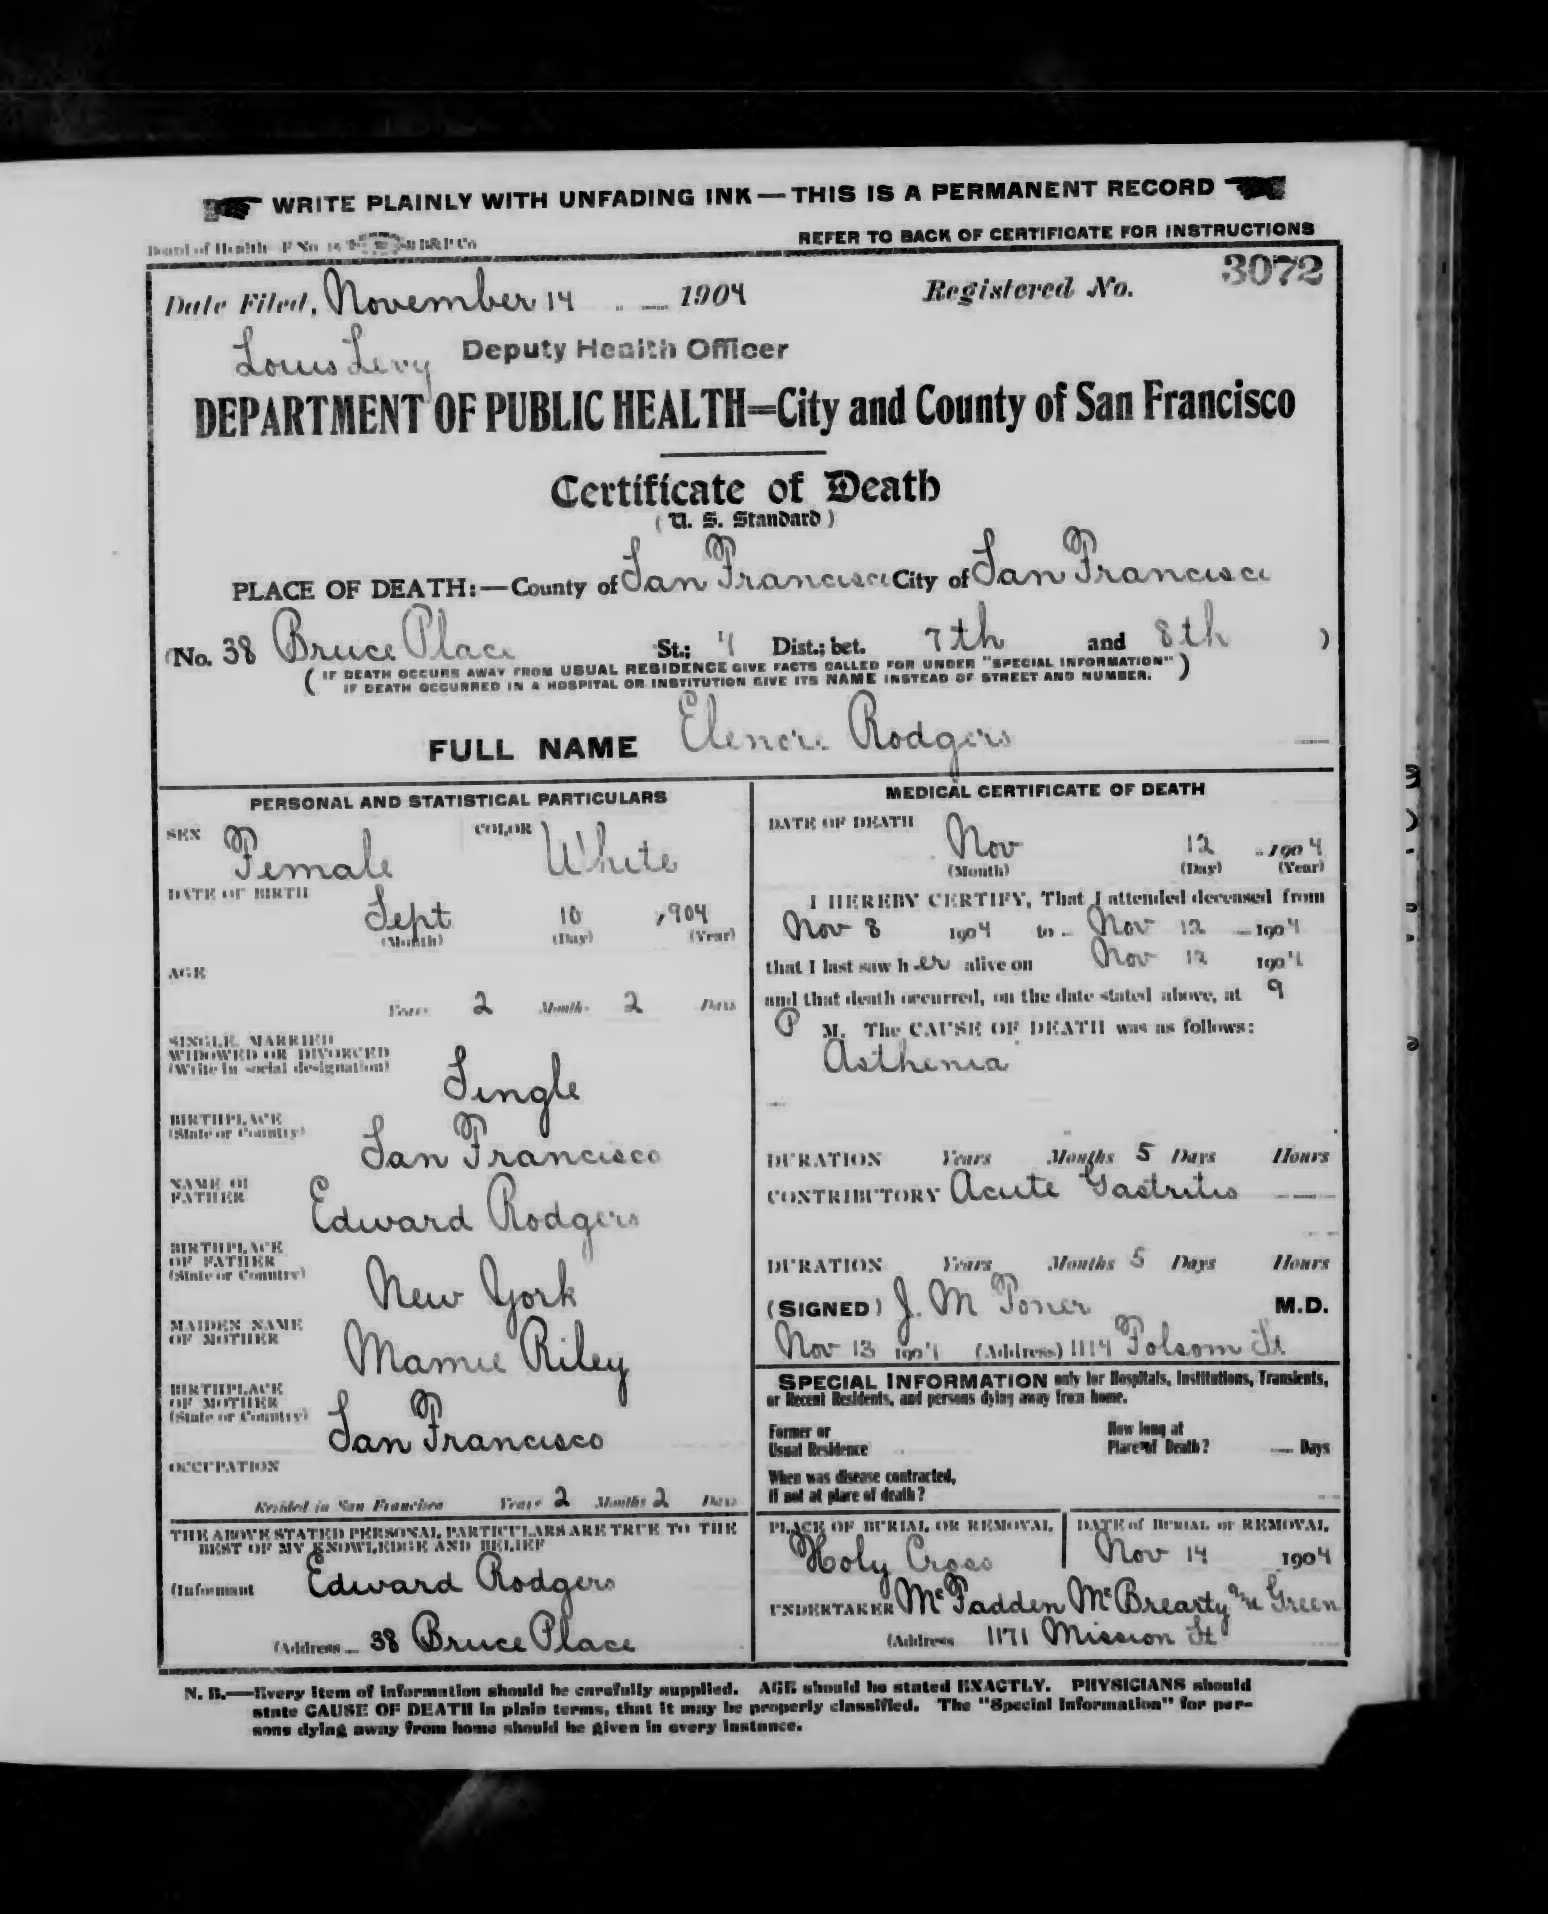 WRITE PLAINLY WITH UNFADING INK — THIS IS A PERMANENT RECORD
Board of Health F No B&P Co
REFER TO BACK OF CERTIFICATE FOR INSTRUCTIONS
Date Filed, November 14 1904 Registered No. 3072
Louis Levy Deputy Health Officer
DEPARTMENT OF PUBLIC HEALTH=City and County of San Francisco
Certificate of Death
(U. S. Standard)
PLACE OF DEATH:—County of San Francisco City of San Francisco
(No. 38 Bruce Place St.; 4 Dist.; bet. 7th and 8th )
( IF DEATH OCCURS AWAY FROM USUAL RESIDENCE GIVE FACTS CALLED FOR UNDER "SPECIAL INFORMATION" )
IF DEATH OCCURRED IN A HOSPITAL OR INSTITUTION GIVE ITS NAME INSTEAD OF STREET AND NUMBER.
FULL NAME Elenore Rodgers
PERSONAL AND STATISTICAL PARTICULARS
SEX Female COLOR White
DATE OF BIRTH
Sept 10 1904
(Month) (Day) (Year)
AGE
Years 2 Months 2 Days
SINGLE, MARRIED
WIDOWED OR DIVORCED
(Write in social designation)
Single
BIRTHPLACE
(State or Country)
San Francisco
NAME OF
FATHER
Edward Rodgers
BIRTHPLACE
OF FATHER
(State or Country)
New York
MAIDEN NAME
OF MOTHER
Mamie Riley
BIRTHPLACE
OF MOTHER
(State or Country)
San Francisco
OCCUPATION
Resided in San Francisco Years 2 Months 2 Days
THE ABOVE STATED PERSONAL PARTICULARS ARE TRUE TO THE
BEST OF MY KNOWLEDGE AND BELIEF
(Informant Edward Rodgers
(Address 38 Bruce Place
MEDICAL CERTIFICATE OF DEATH
DATE OF DEATH
Nov 12 1904
(Month) (Day) (Year)
I HEREBY CERTIFY, That I attended deceased from
Nov 8 1904 to Nov 12 1904
that I last saw her alive on Nov 12 1904
and that death occurred, on the date stated above, at 9
P M. The CAUSE OF DEATH was as follows:
Asthenia
DURATION Years Months 5 Days Hours
CONTRIBUTORY Acute Gastritis
DURATION Years Months 5 Days Hours
(SIGNED) J. M Toner M.D.
Nov 13 1904 (Address) 1114 Folsom St
SPECIAL INFORMATION only for Hospitals, Institutions, Transients,
or Recent Residents, and persons dying away from home.
Former or
Usual Residence
How long at
Place of Death? Days
When was disease contracted,
If not at place of death?
PLACE OF BURIAL OR REMOVAL
Holy Cross
DATE of BURIAL or REMOVAL
Nov 14 1904
UNDERTAKER McFadden McBrearty & Green
(Address 1171 Mission St
N. B.—Every item of information should be carefully supplied. AGE should be stated EXACTLY. PHYSICIANS should
state CAUSE OF DEATH in plain terms, that it may be properly classified. The "Special Information" for per-
sons dying away from home should be given in every instance.